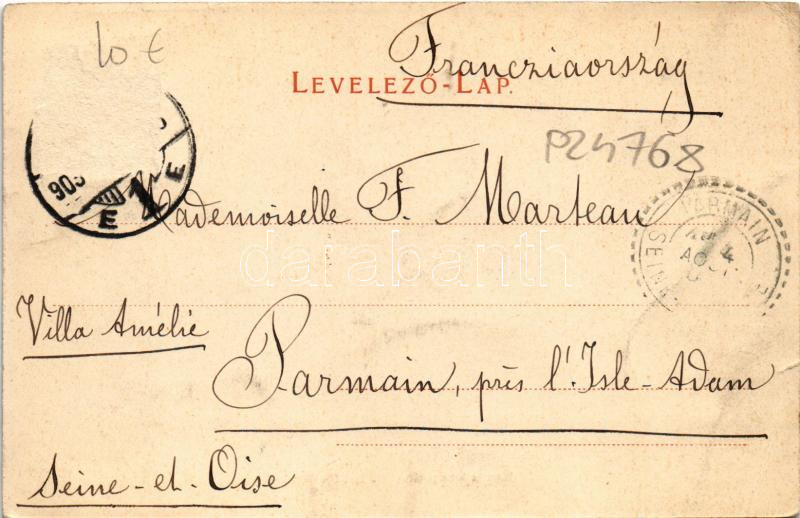 10 €
Francziaország
LEVELEZŐ-LAP.
P24768
903
E
E
Mademoiselle F. Marteau
PARMAIN
4
AOUT
SEINE
darabanth
Villa Amélie
Parmain, près l'Isle-Adam
Seine-et-Oise